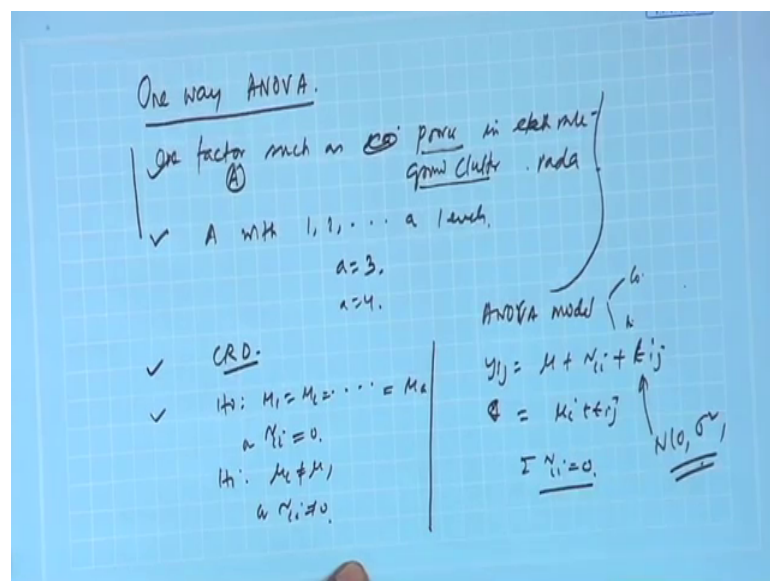 One way ANOVA.
One factor such as power in
(A) ground clutter
A with 1, 2, ... a levels.
a=3.
a=4.
CRD.
H₀: μ₁ = μ₂ = ···· = μₐ
or τᵢ = 0.
H₁: μᵢ ≠ μⱼ
or τᵢ ≠ 0.
ANOVA model
yᵢⱼ = μ + τᵢ + εᵢⱼ
= μᵢ + εᵢⱼ
Σ τᵢ = 0.
N(0, σ²)